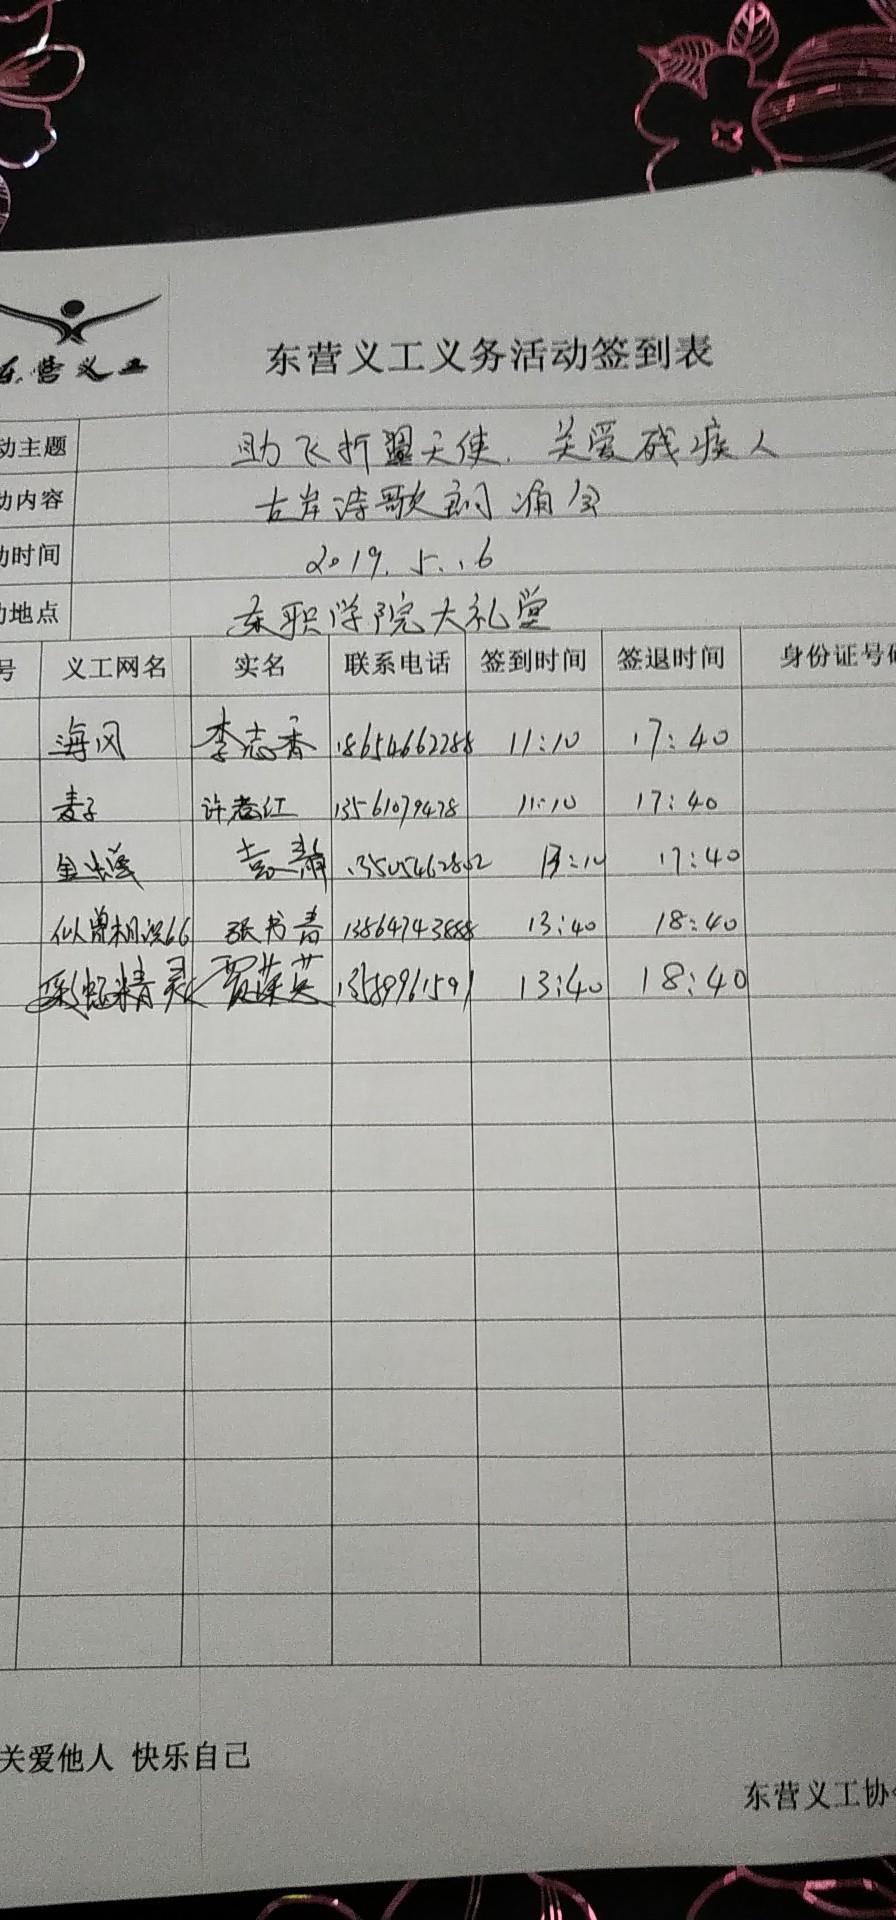 东营义工
东营义工义务活动签到表
动主题 助飞折翼天使. 关爱残疾人
动内容 古岸诗歌朗诵会
动时间 2019.5.16
动地点 东职学院大礼堂
号 义工网名 实名 联系电话 签到时间 签退时间 身份证号码
海风 李志香 18654662288 11:10 17:40
麦子 13561079478 11:10 17:40
13:10 17:40
似曾相识66 张书春 13864743888 13:40 18:40
彩虹精灵 贾莲英 13:40 18:40
关爱他人 快乐自己
东营义工协